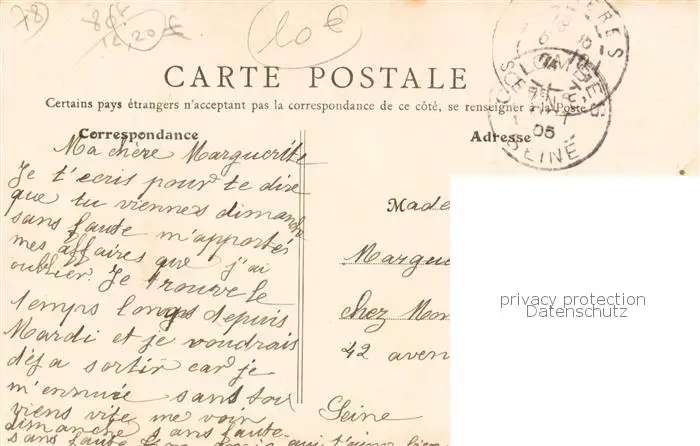 78
12,20 €
10 €
CARTE POSTALE
Certains pays étrangers n'acceptant pas la correspondance de ce côté, se renseigner à la Poste
Correspondance
Adresse
Ma chère Marguerite
Je t'ecris pour te dire
que tu viennes dimanche
sans faute m'apporter
mes affaires que j'ai
oublier. Je trouve le
temps longs depuis
Mardi et je voudrais
déja sortir car je
m'ennuie sans toi
viens vite me voir
dimanche sans faute.
sans faute qui t'aime bien
Made
Margue
chez Mon
42 aven
Seine
COLOMBES
05
SEINE
privacy protection
Datenschutz